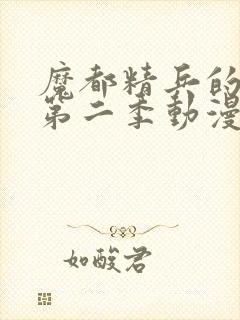 魔都精兵的
第二季動漫
如酸君